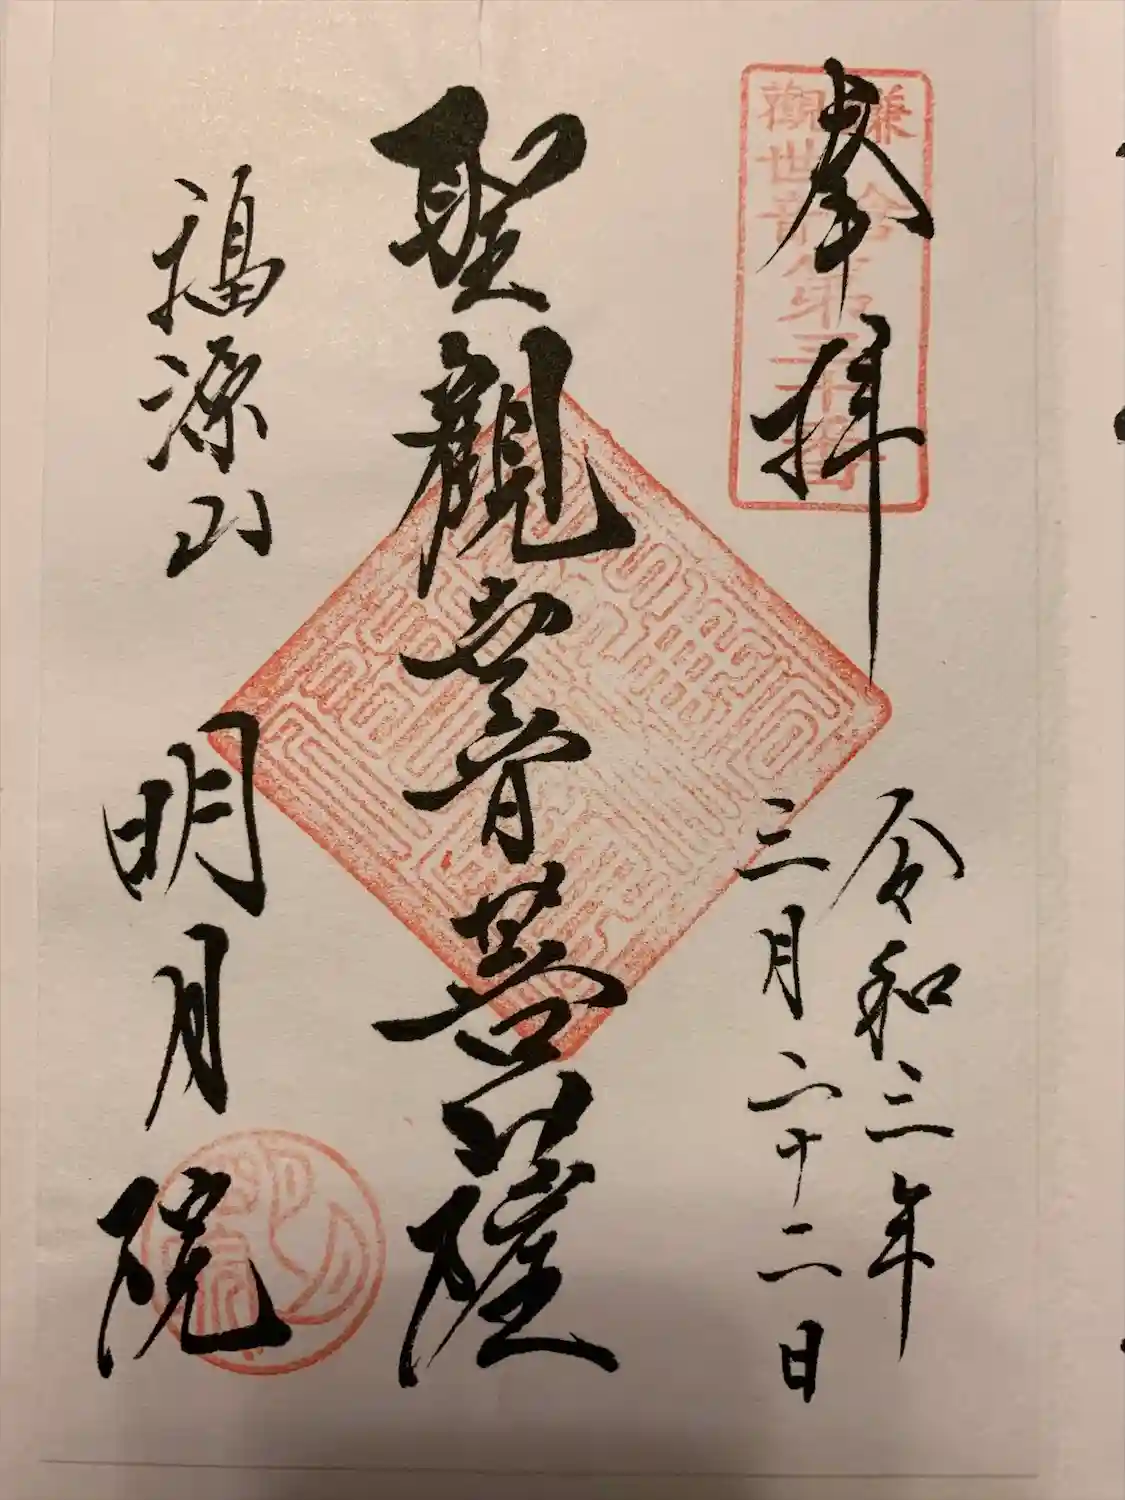 奉拝
鎌倉
觀世音第三十番
令和三年
三月二十二日
聖觀世音菩薩
福源山
明月院